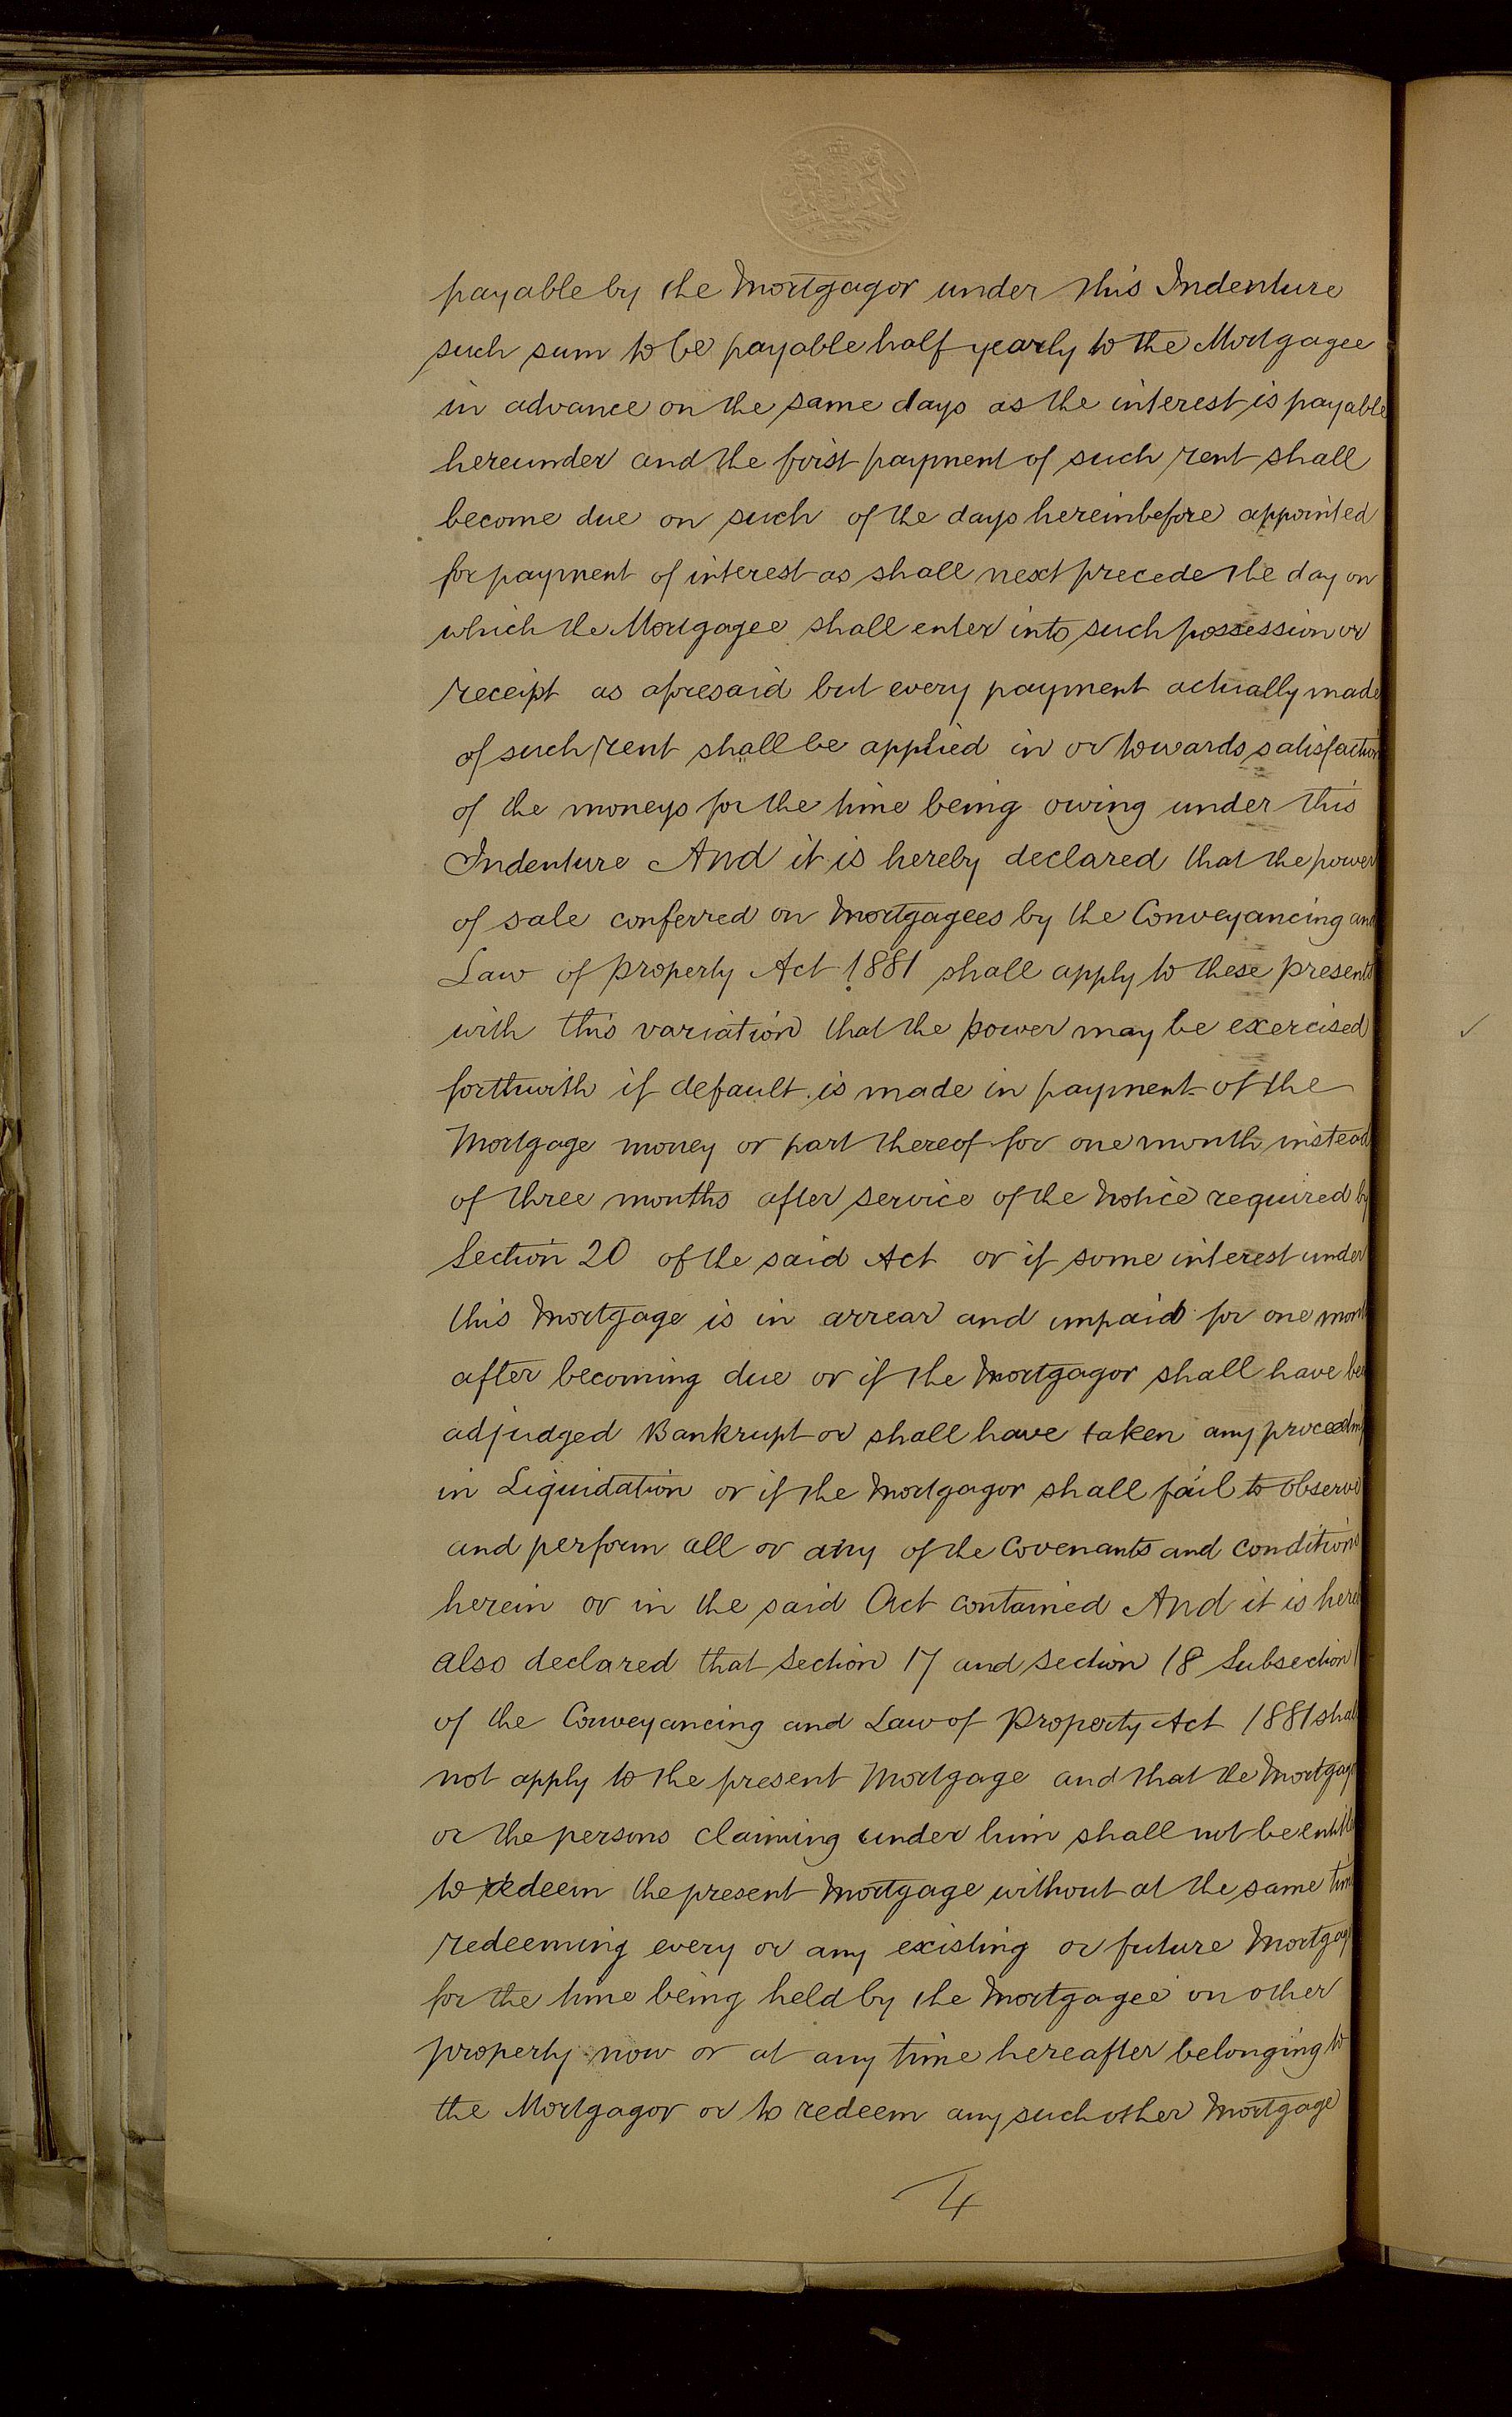 payable by the Mortgagor under this Indenture
such sum to be payable half yearly to the Mortgagee
in advance on the same days as the interest is payable
hereunder and the first payment of such rent shall
become due on such of the days hereinbefore appointed
for payment of interest as shall next precede the day on
which the Mortgagee shall enter into such possession or
receipt as aforesaid but every payment actually made
of such rent shall be applied in or towards satisfaction
of the moneys for the time being owing under this
Indenture And it is hereby declared that the power
of sale conferred on Mortgagees by the Conveyancing and
Law of Property Act 1881 shall apply to these presents
with this variation that the power may be exercised
forthwith if default is made in payment of the
Mortgage money or part thereof for one month instead
of three months after service of the Notice required by
Section 20 of the said Act or if some interest under
this Mortgage is in arrear and unpaid for one mon
after becoming due or if the Mortgagor shall have be
adjudged Bankrupt or shall have taken any proceeding
in Liquidation or if the Mortgagor shall fail to observe
and perform all or any of the Covenants and conditions
herein or in the said Act contained And it is here
also declared that Section 17 and section 18 Subsection 1
of the Conveyancing and Law of Property Act 1881 shall
not apply to the present Mortgage and that the Mortgag
or the persons claiming under him shall not be entitle
to redeem the present Mortgage without at the same tim
redeeming every or any existing or future Mortgag
for the time being held by the Mortgagee on other
property now or at any time hereafter belonging to
the Mortgagor or to redeem any such other Mortgage
4